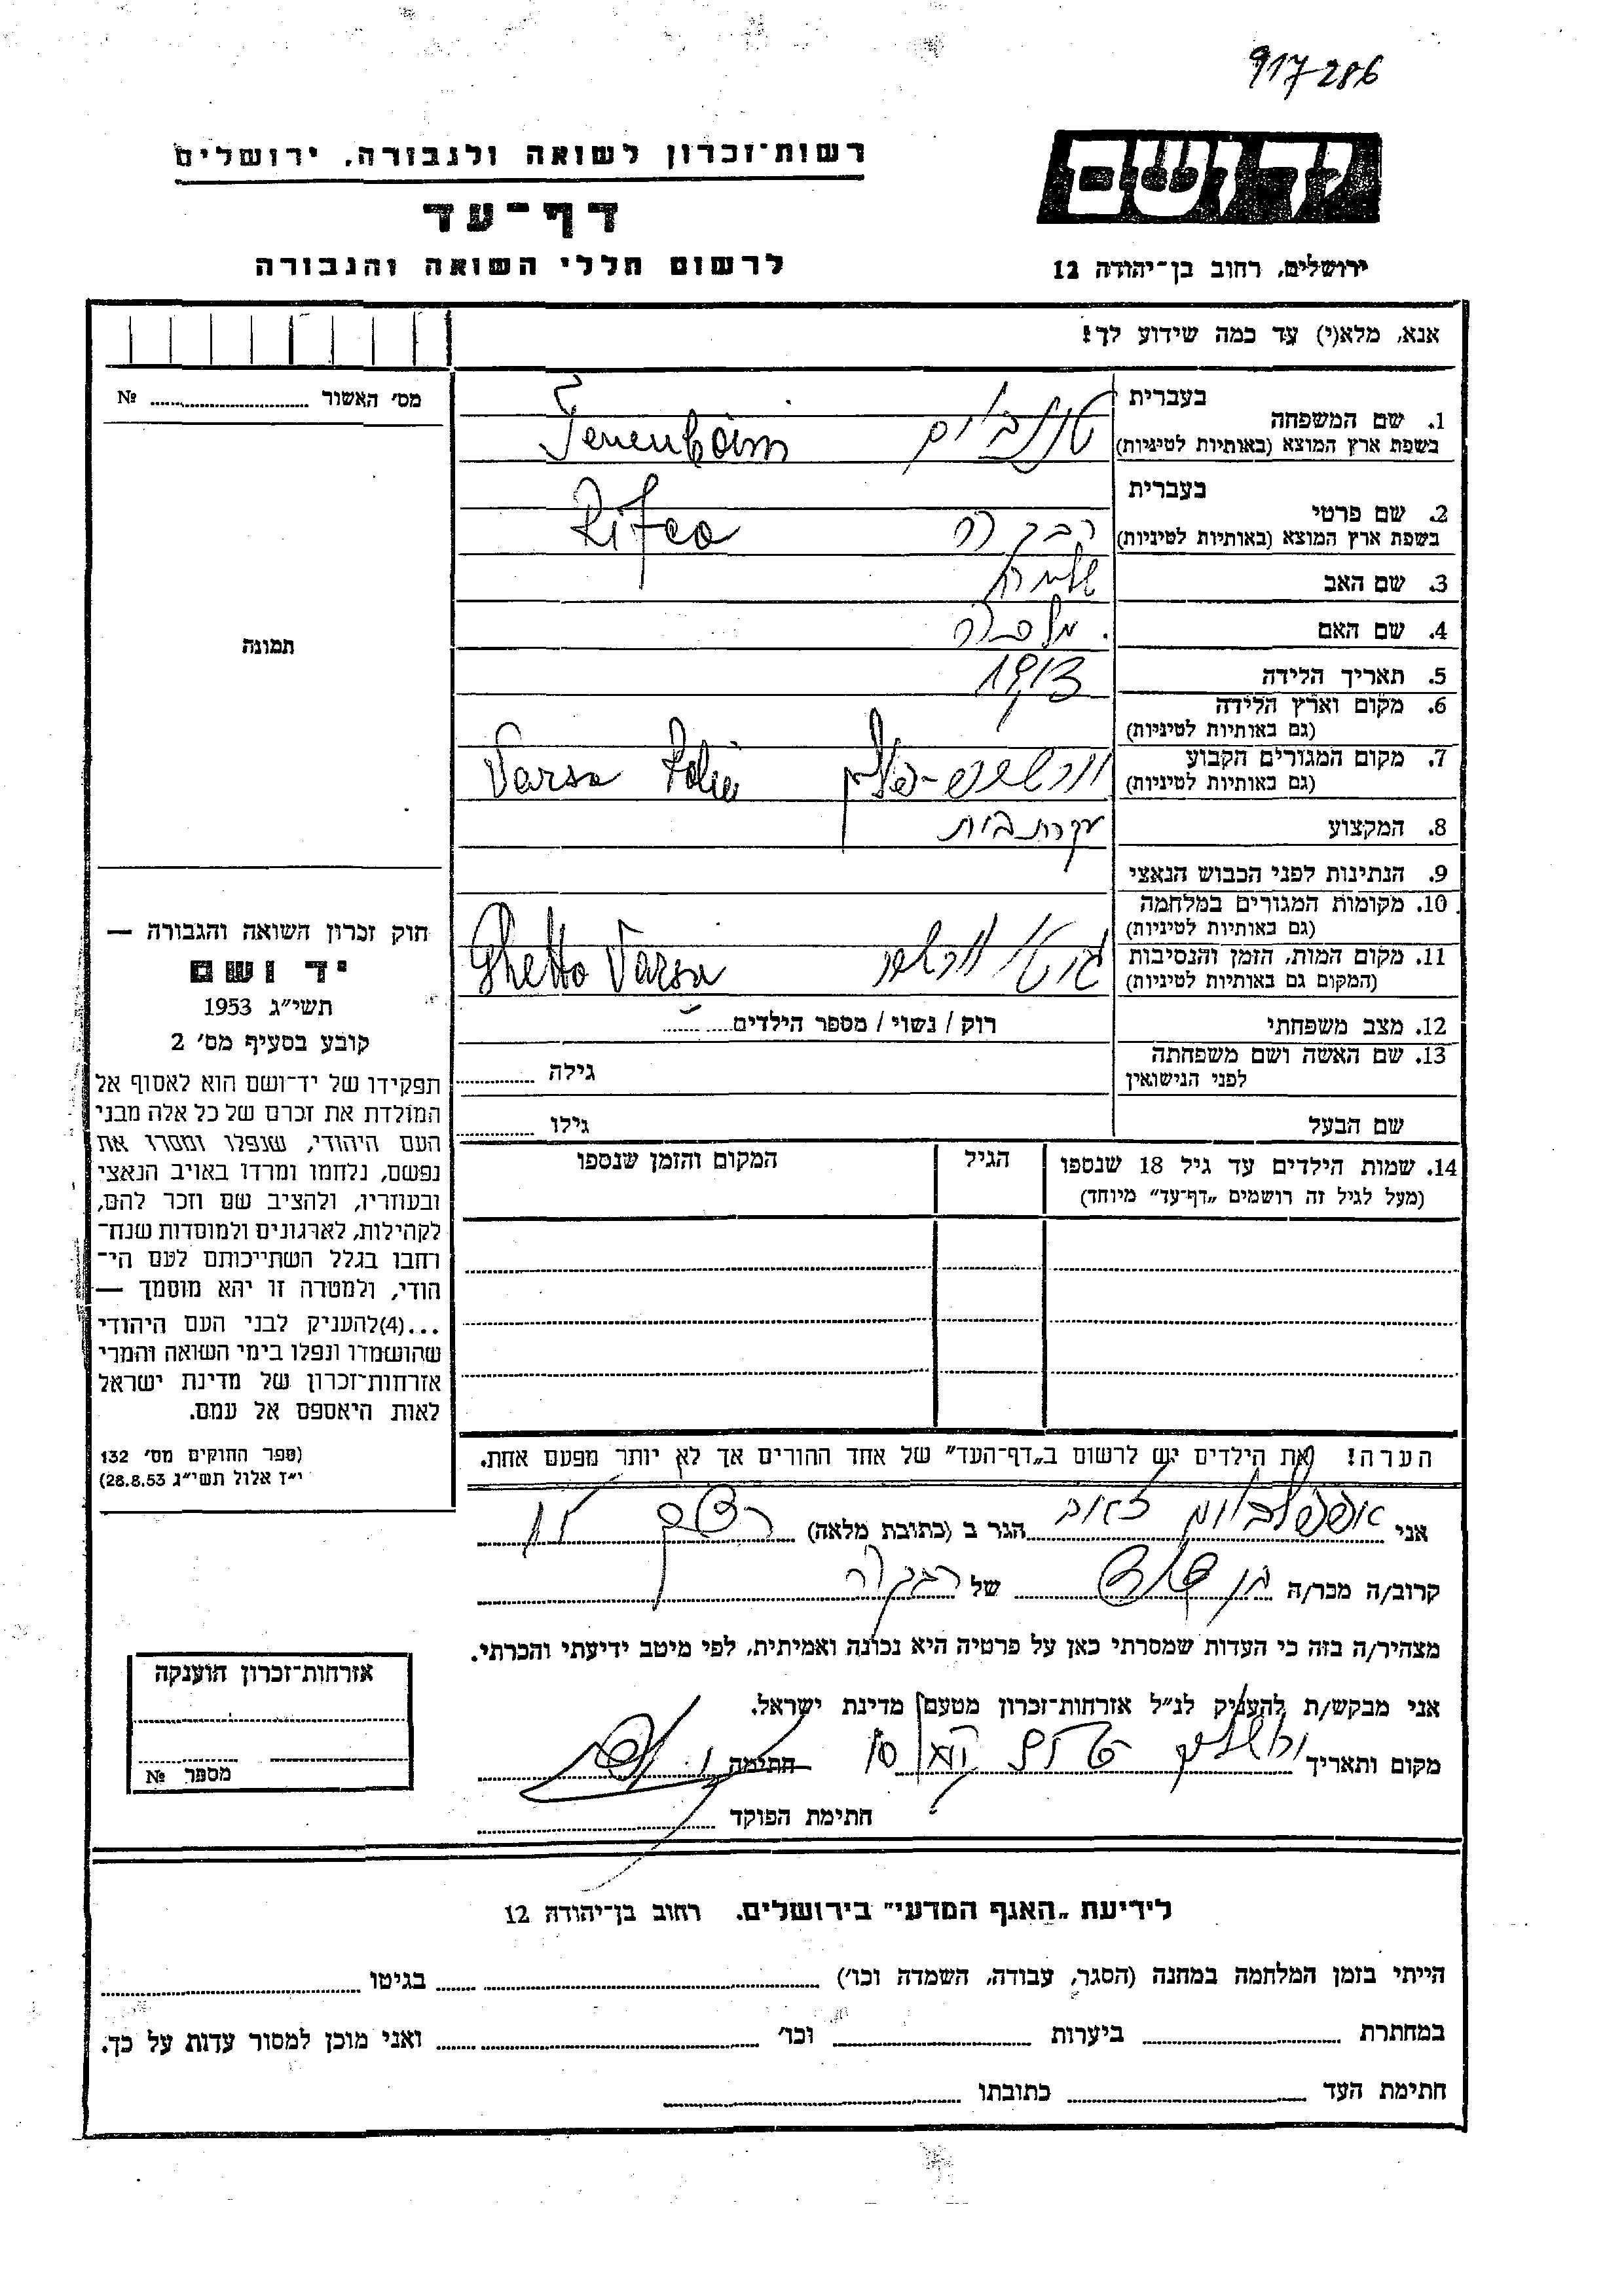 917286
יד ושם
רשות־זכרון לשואה ולגבורה, ירושלים
דף־עד
ירושלים, רחוב בן־יהודה 12
לרשום חללי השואה והגבורה
אנא, מלא(י) עד כמה שידוע לך!
מס׳ האשור № ........
תמונה
חוק זכרון השואה והגבורה —
יד ושם
תשי״ג 1953
קובע בסעיף מס׳ 2
תפקידו של יד־ושם הוא לאסוף אל
המולדת את זכרם של כל אלה מבני
העם היהודי, שנפלו ומסרו את
נפשם, נלחמו ומרדו באויב הנאצי
ובעוזריו, ולהציב שם וזכר להם,
לקהילות, לארגונים ולמוסדות שנח־
רחבו בגלל השתייכותם לעם הי־
הודי, ולמטרה זו יהא מוסמך —
...(4)להעניק לבני העם היהודי
שהושמדו ונפלו בימי השואה והמרי
אזרחות־זכרון של מדינת ישראל
לאות היאספם אל עמם.
(ספר החוקים מס׳ 132
י״ז אלול תשי״ג 28.8.53)
בעברית
1. שם המשפחה
בשפת ארץ המוצא (באותיות לטיניות)
טננבוים Tenenboim
בעברית
2. שם פרטי
בשפת ארץ המוצא (באותיות לטיניות)
רבקה Rifca
3. שם האב
4. שם האם מלכה
5. תאריך הלידה 1913
6. מקום וארץ הלידה
(גם באותיות לטיניות)
7. מקום המגורים הקבוע
(גם באותיות לטיניות)
וורשה-פולין Varsa Polin
8. המקצוע עקרת בית
9. הנתינות לפני הכבוש הנאצי
10. מקומות המגורים במלחמה
(גם באותיות לטיניות)
11. מקום המות, הזמן והנסיבות
(המקום גם באותיות לטיניות)
גיטו וורשה Ghetto Varsa
12. מצב משפחתי רוק / נשוי / מספר הילדים........
13. שם האשה ושם משפחתה
לפני הנישואין
גילה ........
שם הבעל גילו ........
14. שמות הילדים עד גיל 18 שנספו הגיל המקום והזמן שנספו
(מעל לגיל זה רושמים „דף־עד״ מיוחד)
הערה! את הילדים יש לרשום ב„דף־העד״ של אחד ההורים אך לא יותר מפעם אחת.
אני אפפלבוים זאב הגר ב (כתובת מלאה)
קרוב/ה מכר/ה בן דוד של רבקה
מצהיר/ה בזה כי העדות שמסרתי כאן על פרטיה היא נכונה ואמיתית, לפי מיטב ידיעתי והכרתי.
אני מבקש/ת להעניק לנ״ל אזרחות־זכרון מטעם מדינת ישראל.
מקום ותאריך ירושלים חתימה
חתימת הפוקד ........
אזרחות־זכרון הוענקה
מספר №
לידיעת „האגף המדעי״ בירושלים. רחוב בן־יהודה 12
הייתי בזמן המלחמה במחנה (הסגר, עבודה, השמדה וכו׳) ........ בגיטו ........
במחתרת ........ ביערות ........ וכו׳ ........ ואני מוכן למסור עדות על כך.
חתימת העד ........ כתובתו ........